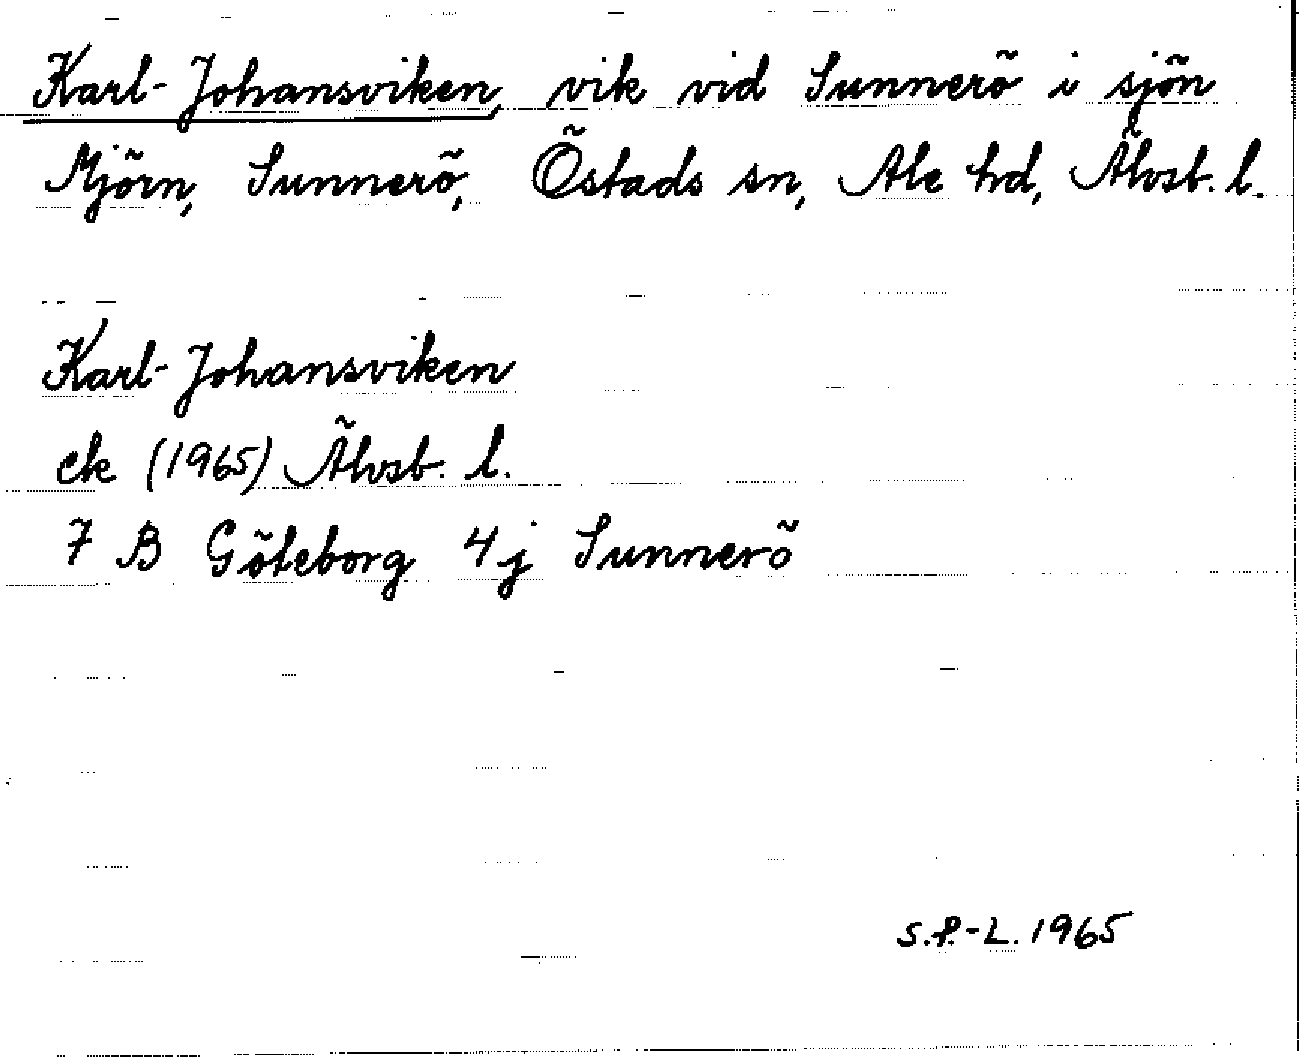 Karl-Johansviken, vik vid Sunnerö i sjön
Mjörn, Sunnerö, Östads sn, Ale hd, Älvsb. l.
Karl-Johansviken
ek (1965) Älvsb. l.
7 B Göteborg 4j Sunnerö
S.P.-L. 1965